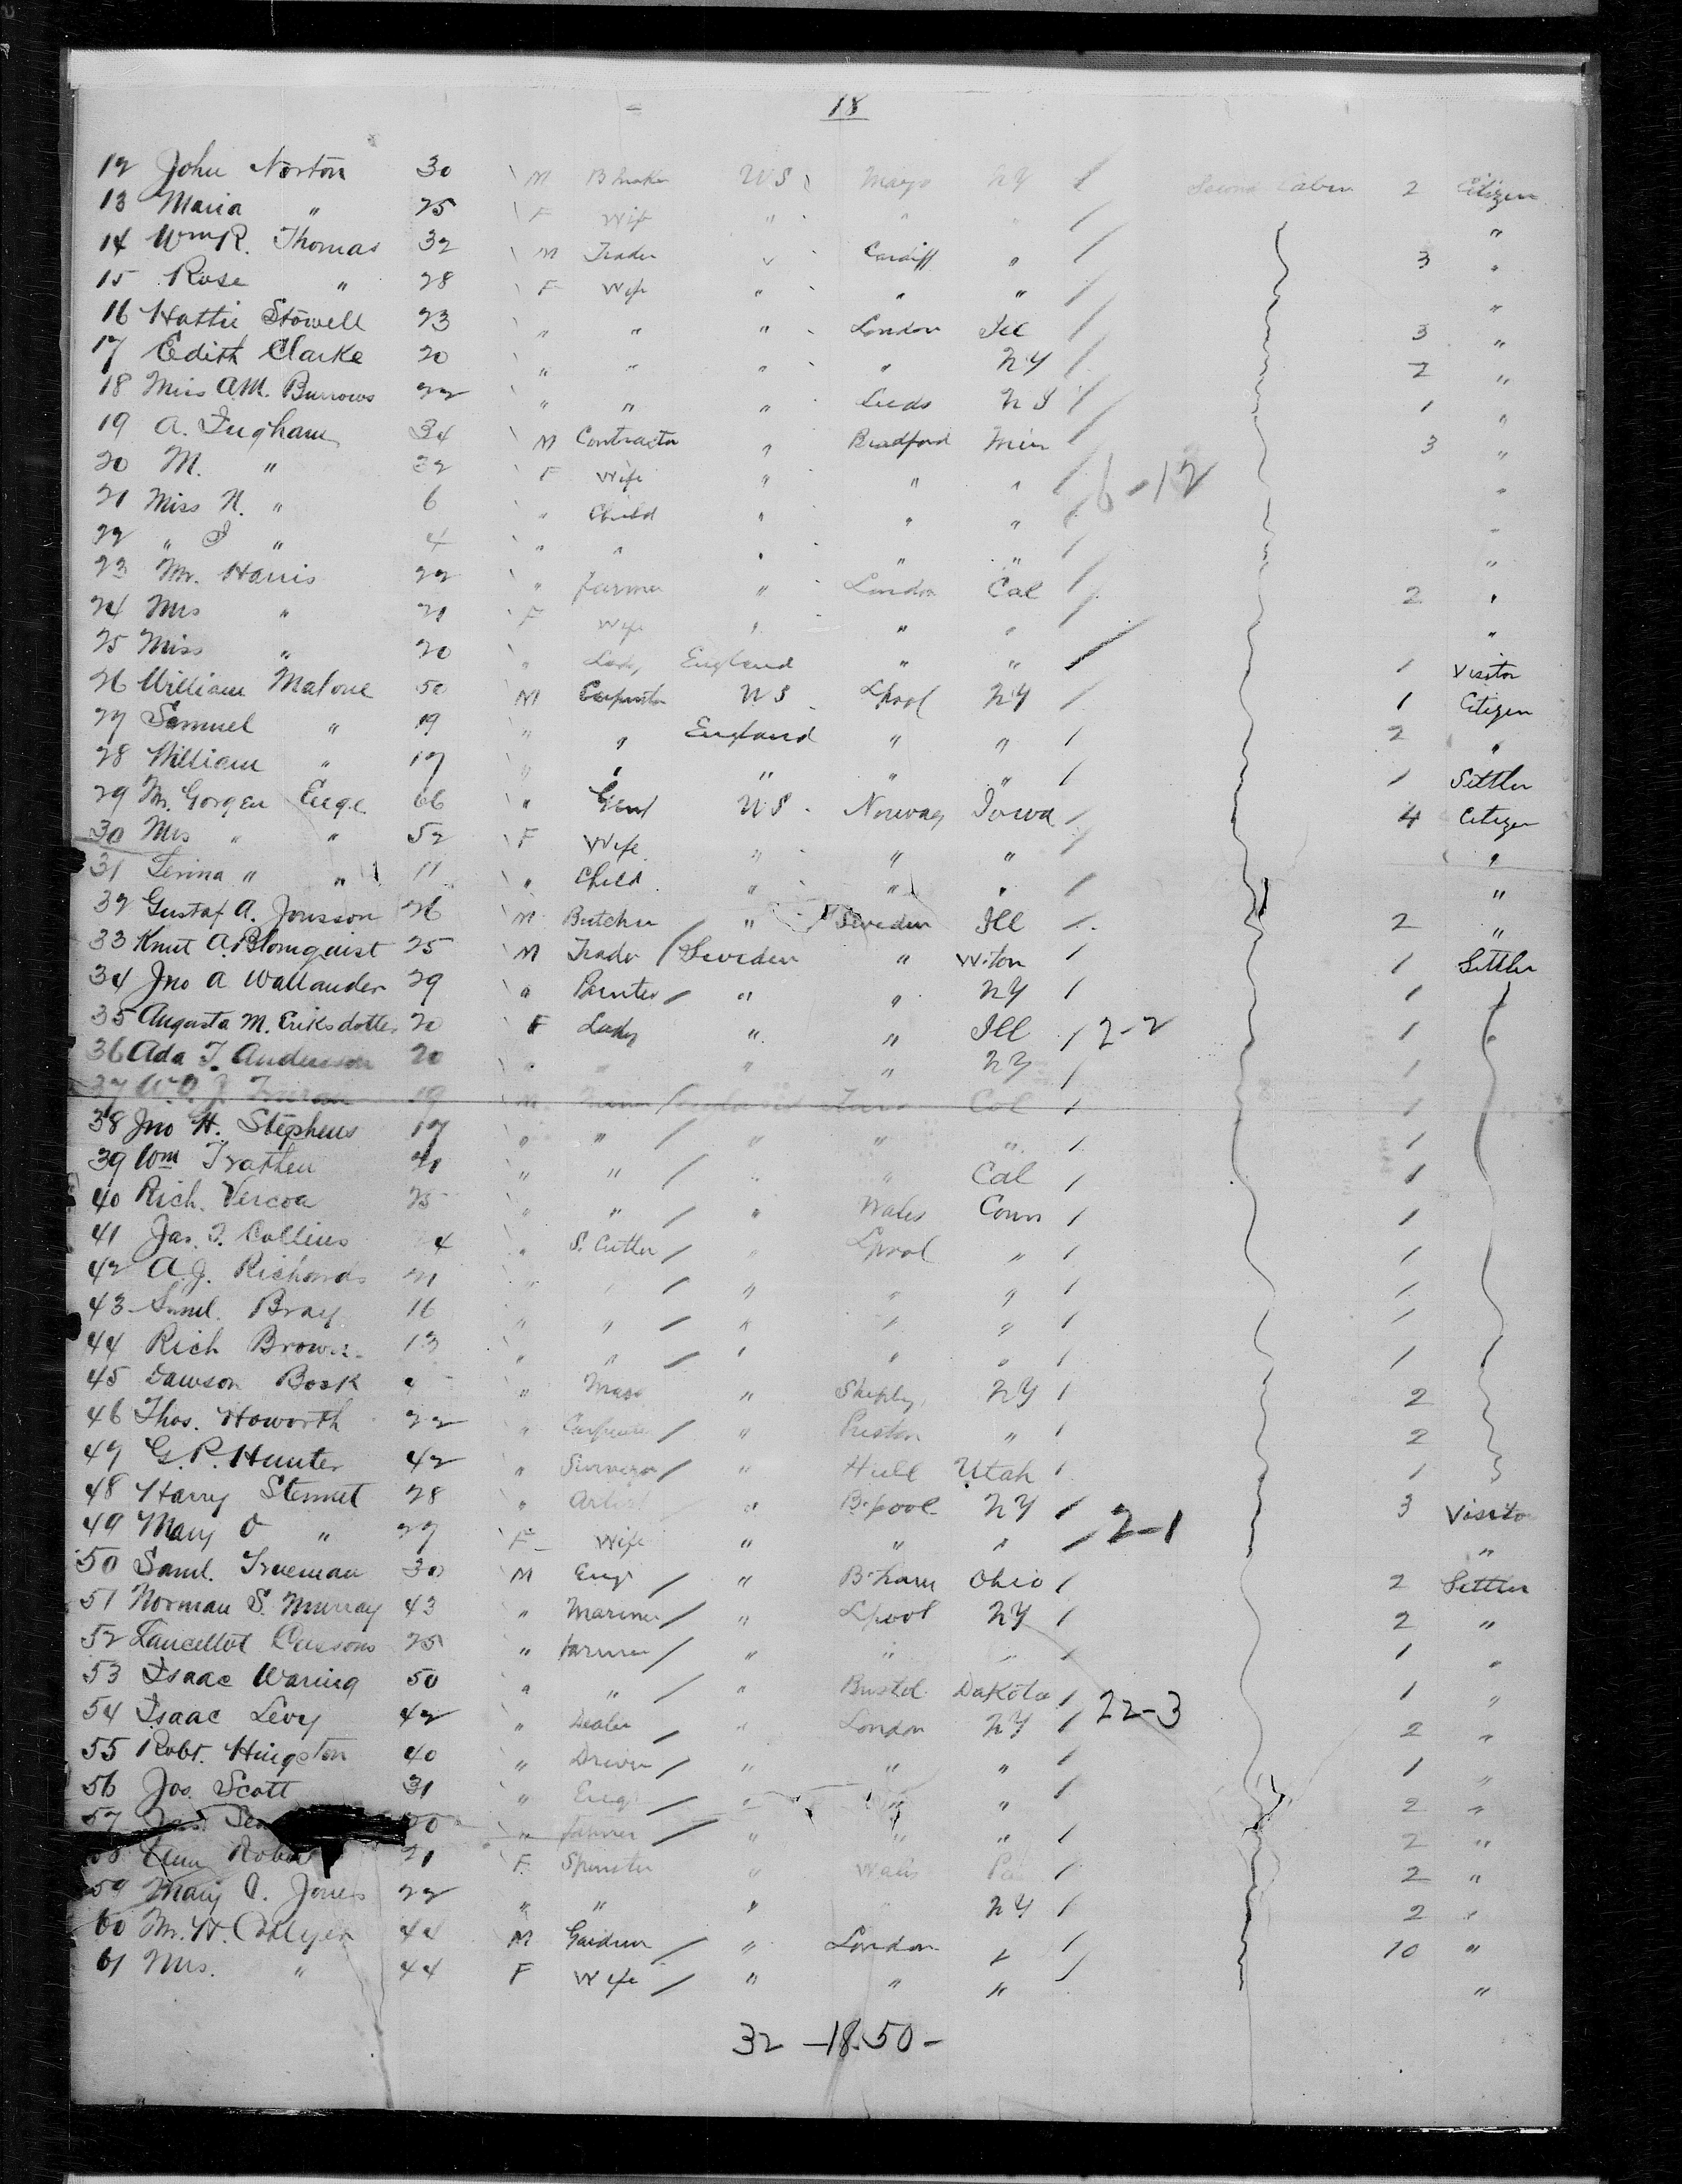 18
12 John Norton 30 M US Mayo NY / Second Cabin 2 Citizen
13 Maria " 25 F Wife " " " / "
14 Wm R. Thomas 32 M Trader " Cardiff " / 3 "
15 Rose " 28 F Wife " " " / "
16 Hattie Stowell 23 " " " London Ill / 3 "
17 Edith Clarke 20 " " " " NY / 2 "
18 Miss A.M. Burrows 22 " " " Leeds / 1 "
19 A. Ingham 34 M Contractor " Bradford / 3 "
20 M. " 32 F Wife " " " / 6-12 "
21 Miss N. " 6 " Child " " " / "
22 " " 4 " " " " " / "
23 Mr. Harris 22 " farmer " London Cal / 2 "
24 Mrs " 21 F Wife " " " / "
25 Miss " 20 " Lady England " " / 1 Visitor
26 William Malone 50 M Carpenter US Lpool NY / 1 Citizen
27 Samuel " 19 " " England " " / 2 "
28 William " 17 " " " " " / 1 Settler
29 Mr. Gorgen 66 " Gent US Norway Iowa / 4 Citizen
30 Mrs " " 52 F Wife " " " / "
31 " " 11 " Child " " " / "
32 Gustaf A. Jonsson 26 M Butcher / " Sweden Ill / 2 "
33 Knut A. Blomquist 25 M Trader / Sweden " W.ton / 1 Settler
34 Jno A Wallander 29 " / " " NY / 1
35 Augusta M. Eriksdotter 20 F Lady " " Ill / 2-2 1
36 Ada T. Anderson 20 " " " " NY / 1
37 19 M Col / 1
38 Jno H. Stephens 17 " " / " " " / 1
39 Wm Trathen 21 " " / " " Cal / 1
40 Rich. Vercoa 25 " " / " Wales Conn / 1
41 Jas. T. Collins " S. Cutler / " Lpool " / 1
42 A.J. Richards 21 " " / " " " / 1
43 Saml. Bray 16 " " / " " " / 1
44 Rich Brown 13 " " / " " " / 1
45 Dawson " " Shipley NY / 2
46 Thos. Howorth 22 " Carpenter / " Preston " / 2
47 G. P. Hunter 42 " Surveyor / " Hull Utah / 1
48 Harry 28 " Artist " B.pool NY / 3 Visitor
49 Mary " 27 F Wife " " " / 2-1 "
50 Saml. Trueman 30 M Engr / " B.ham Ohio / 2 Settler
51 Norman S. Murray 43 " Mariner / " Lpool NY / 2 "
52 Lancellot 25 " farmer / " " " / 1 "
53 Isaac Waring 50 " " / " Bristol Dakota / 22-3 1 "
54 Isaac Levy 42 " Dealer / " London NY / 2 "
55 Robt. Hingston 40 " Driver / " " " / 1 "
56 Jos. Scott 31 " Engr / " " " / 2 "
57 20 " farmer / " " " / 2 "
58 21 F. Spinster " Wales Pa / 2 "
59 Mary A. Jones 22 " " " NY / 2 "
60 Mr. H. 44 M Gardner / " London " / 10 "
61 Mrs. " 44 F Wife / " " " / "
32 -18.50-